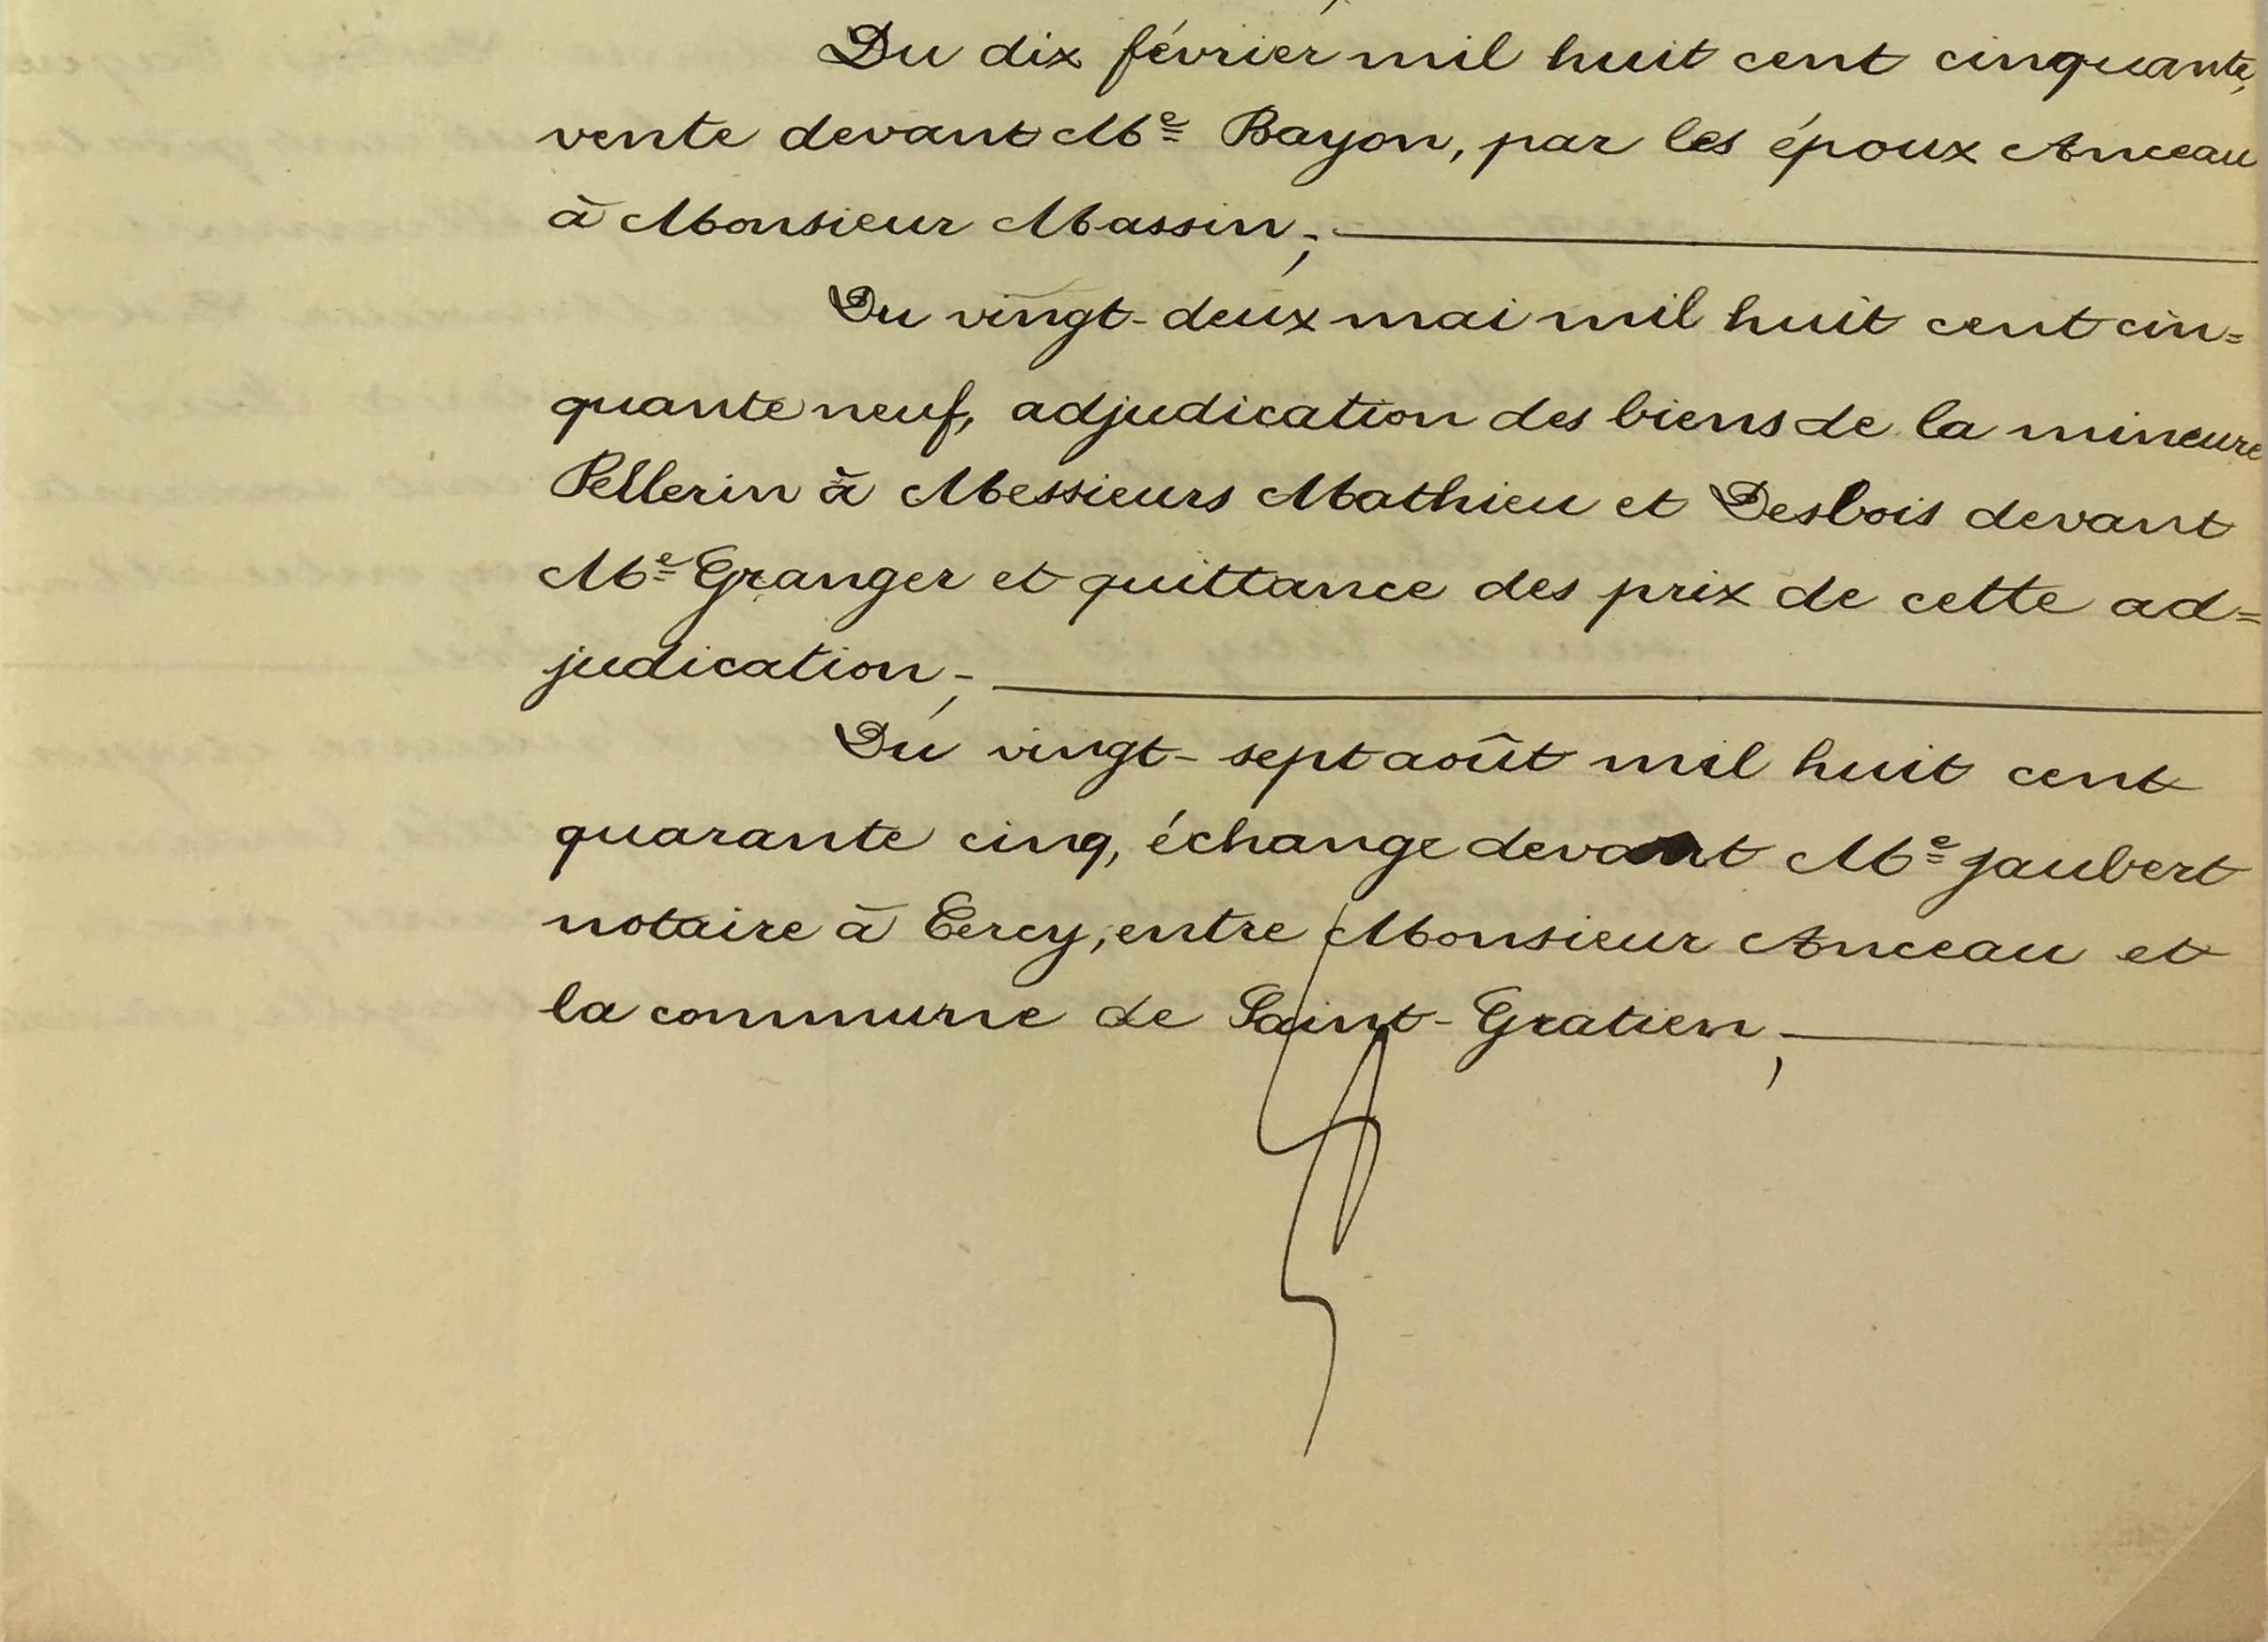 Du dix février mil huit cent cinquante,
vente devant Me Bayon, par les époux Anceau
à Monsieur Massin;
Du vingt-deux mai mil huit cent cin=
quante neuf, adjudication des biens de la mineure
Pellerin à Messieurs Mathieu et Desbois devant
Me Granger et quittance des prix de cette ad=
judication;
Du vingt-sept août mil huit cent
quarante cinq, échange devant Me Jaubert
notaire à Cercy, entre Monsieur Anceau et
la commune de Saint-Gratien;